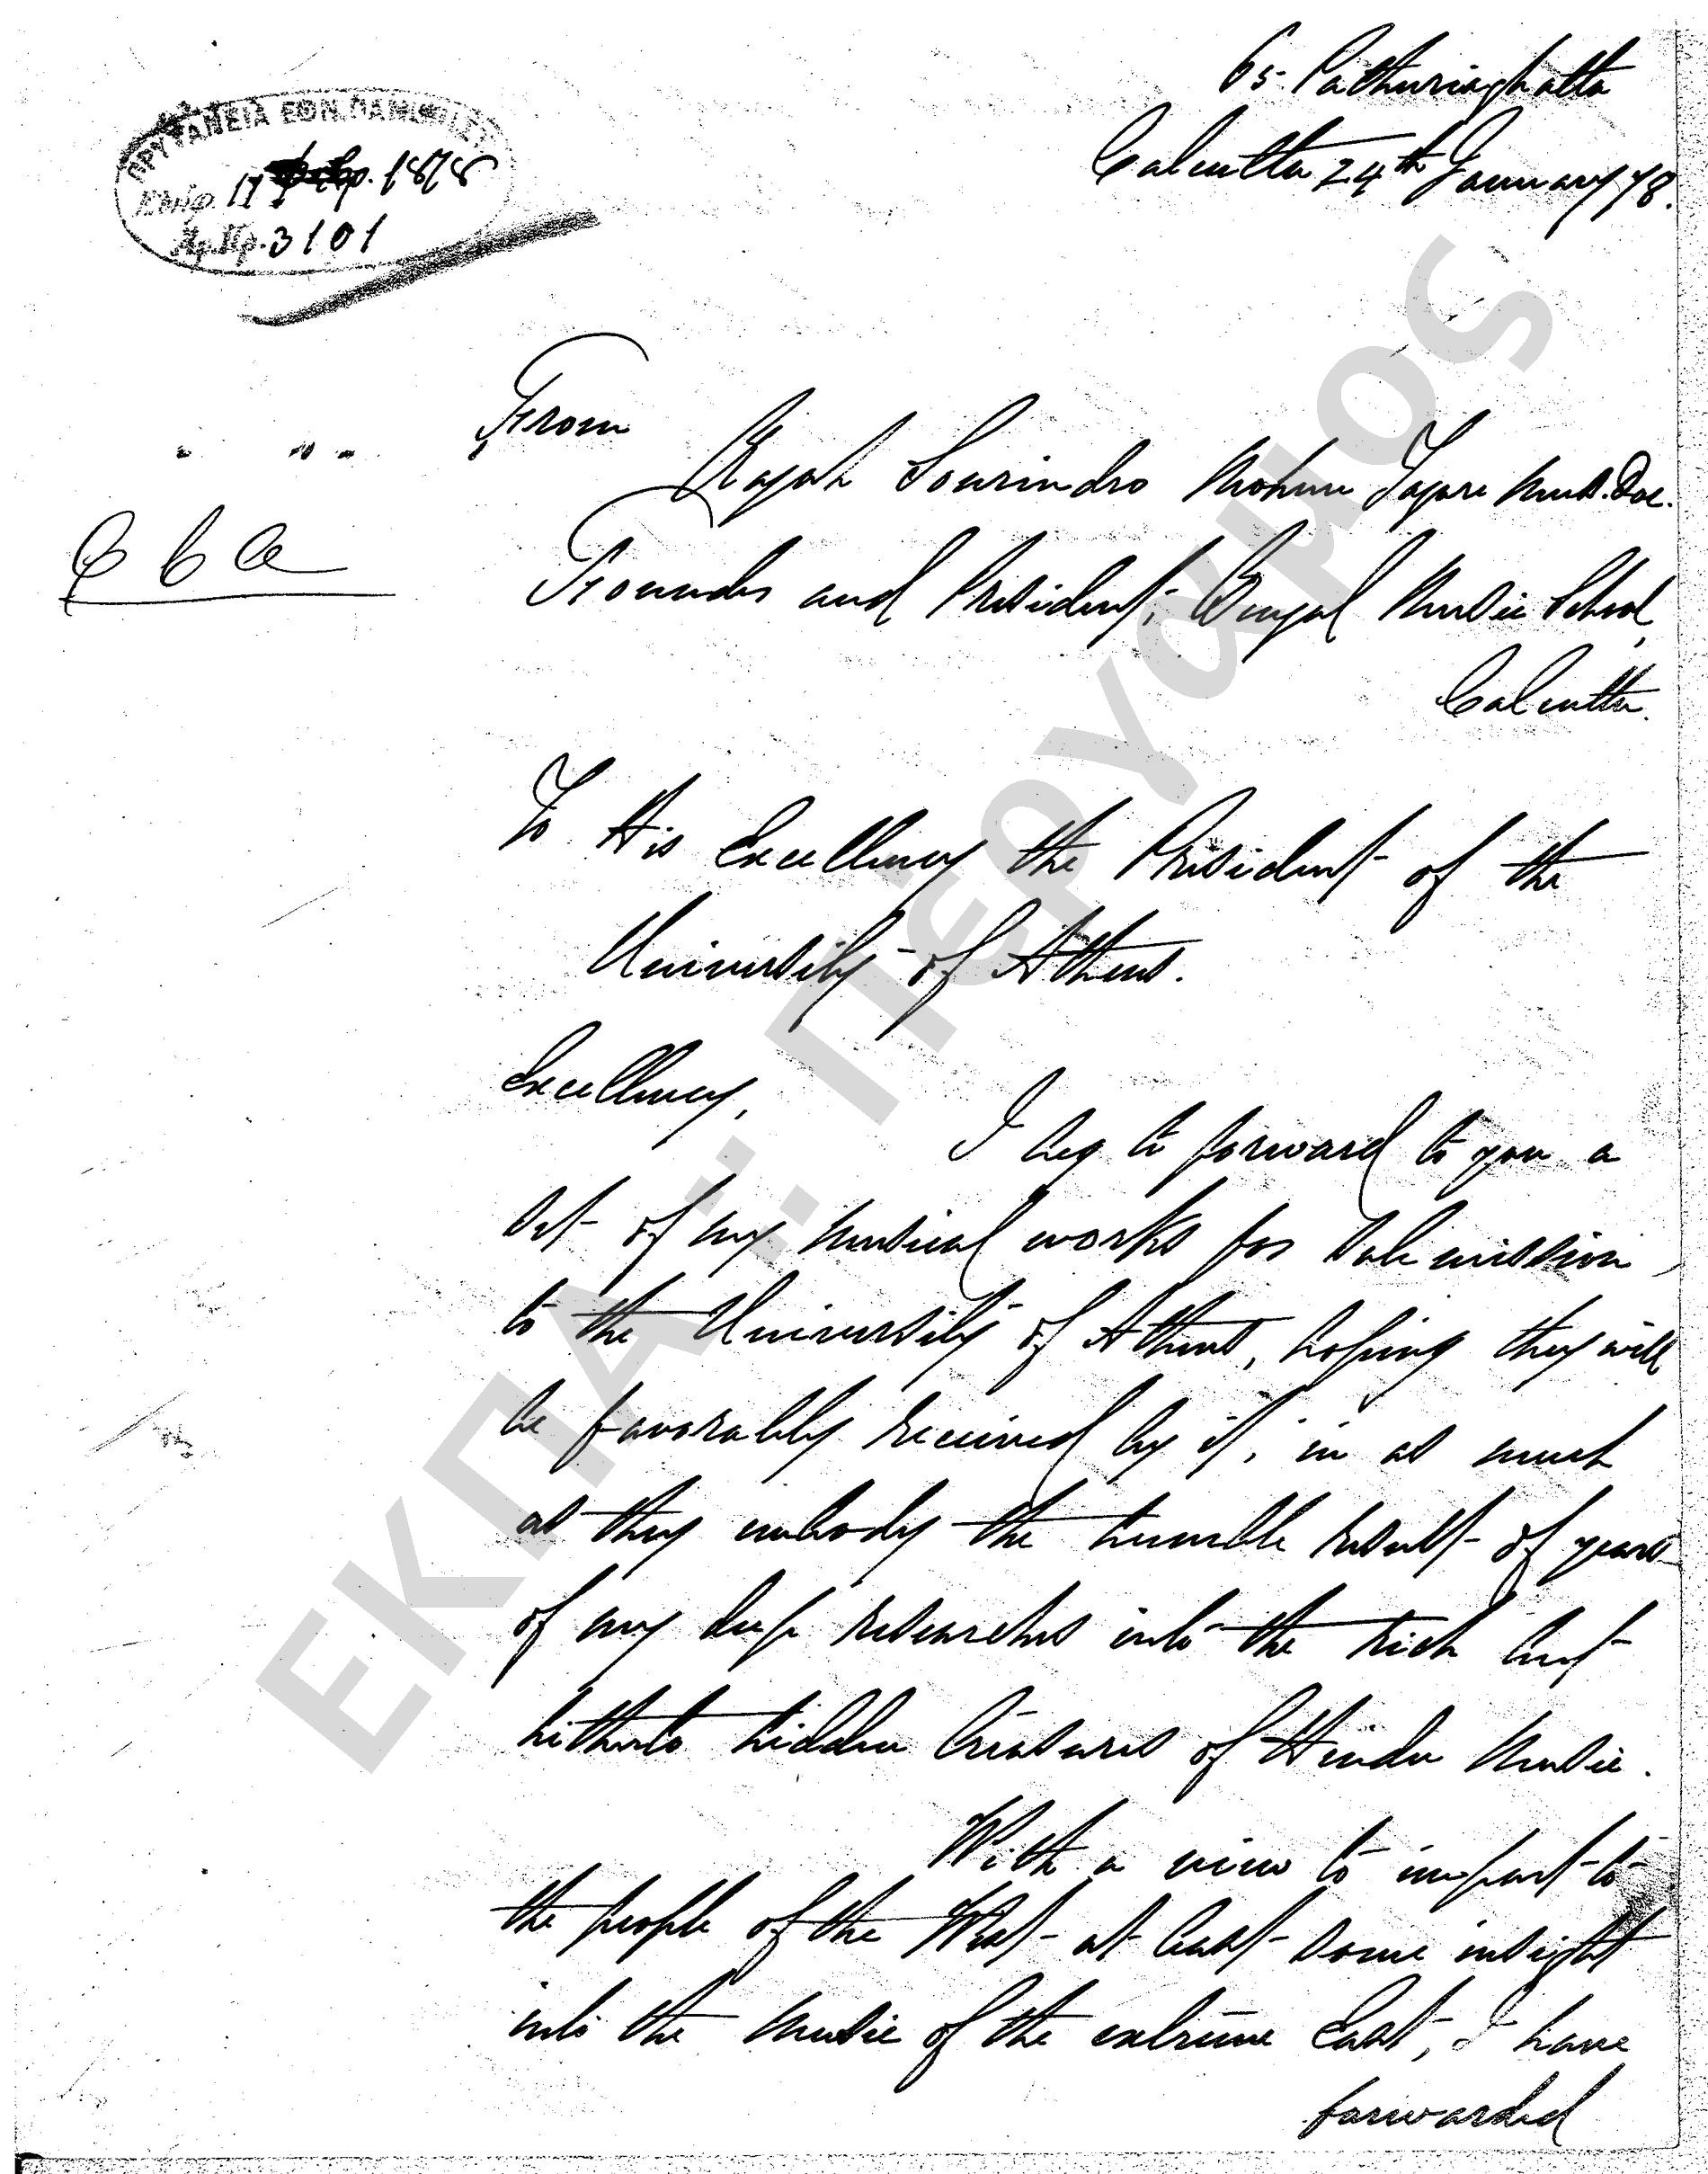 65 Pathuriaghatta
Calcutta 24th January 78.
ΠΡΥΤΑΝΕΙΑ ΕΘΝ. ΠΑΝΕΠΙΣ
17 1878
Αρ. Πρ. 3101
From
Rajah Sourindro Mohun Tagore Mus. Doc.
Founder and President, Bengal Music School,
Calcutta.
To His Excellency the President of the
University of Athens.
Excellency,
I beg to forward to you a
set of my musical works for submission
to the University of Athens, hoping they will
be favorably received by it, in as much
as they embody the humble result of years
of my deep researches into the rich but
hitherto hidden treasures of Hindu Music.
With a view to impart to
the people of the West at least some insight
into the Music of the extreme East, I have
forwarded
ΕΚΠΑ.: Πέργαμος